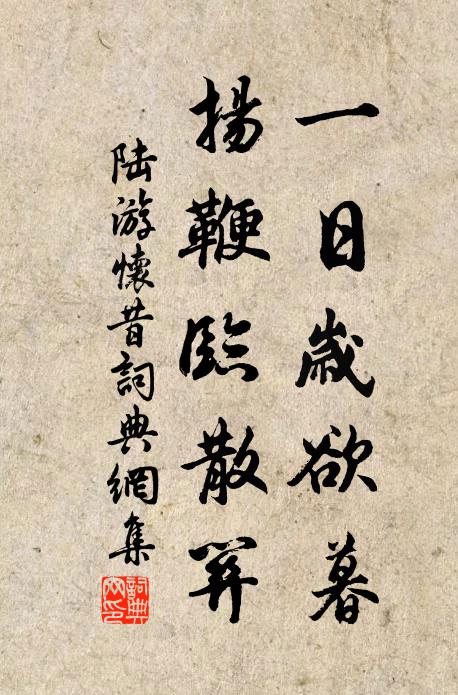 一日歲欲暮
揚鞭臨散關
陸游懷昔詞典網集
詞典網印